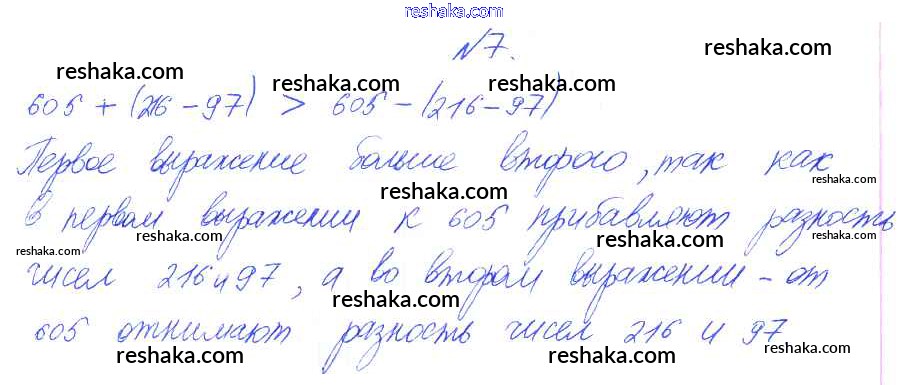 reshaka.com
№7.
reshaka.com
reshaka.com
reshaka.com
reshaka.com
605 + (216 - 97) > 605 - (216 - 97)
Первое выражение больше второго, так как
reshaka.com
reshaka.com
в первом выражении к 605 прибавляют разность
reshaka.com
reshaka.com
reshaka.com
reshaka.com
чисел 216 и 97, а во втором выражении - от
reshaka.com
reshaka.com
605 отнимают разность чисел 216 и 97
reshaka.com
reshaka.com
reshaka.com